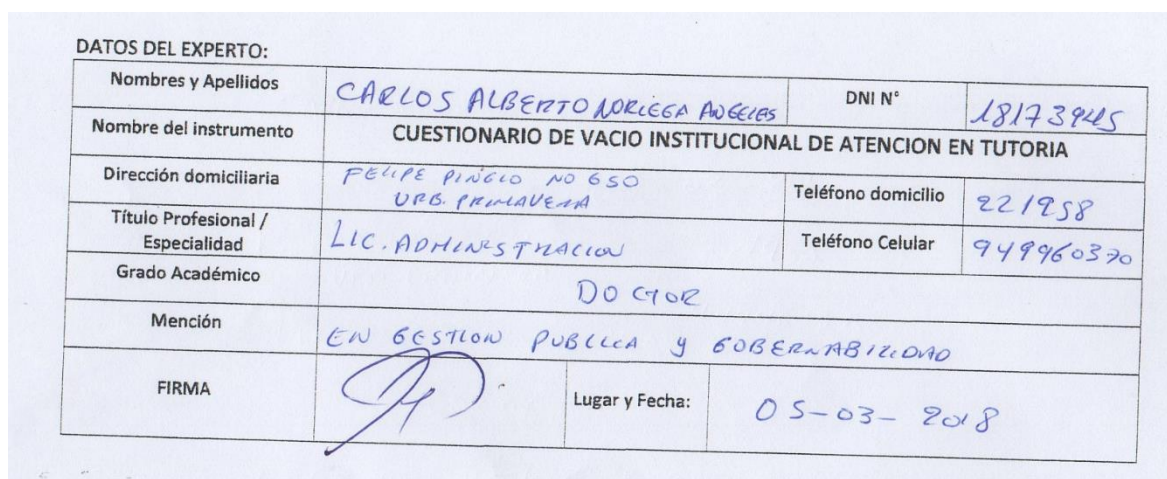 DATOS DEL EXPERTO:
Nombres y Apellidos CARLOS ALBERTO NORIEGA ANGELES DNI N° 18173945
Nombre del instrumento CUESTIONARIO DE VACIO INSTITUCIONAL DE ATENCION EN TUTORIA
Dirección domiciliaria FELIPE PINGLO NO 650
URB. PRIMAVERA Teléfono domicilio 221958
Título Profesional /
Especialidad LIC. ADMINISTRACION Teléfono Celular 949960370
Grado Académico DOCTOR
Mención EN GESTION PUBLICA y GOBERNABILIDAD
FIRMA Lugar y Fecha: 05-03-2018